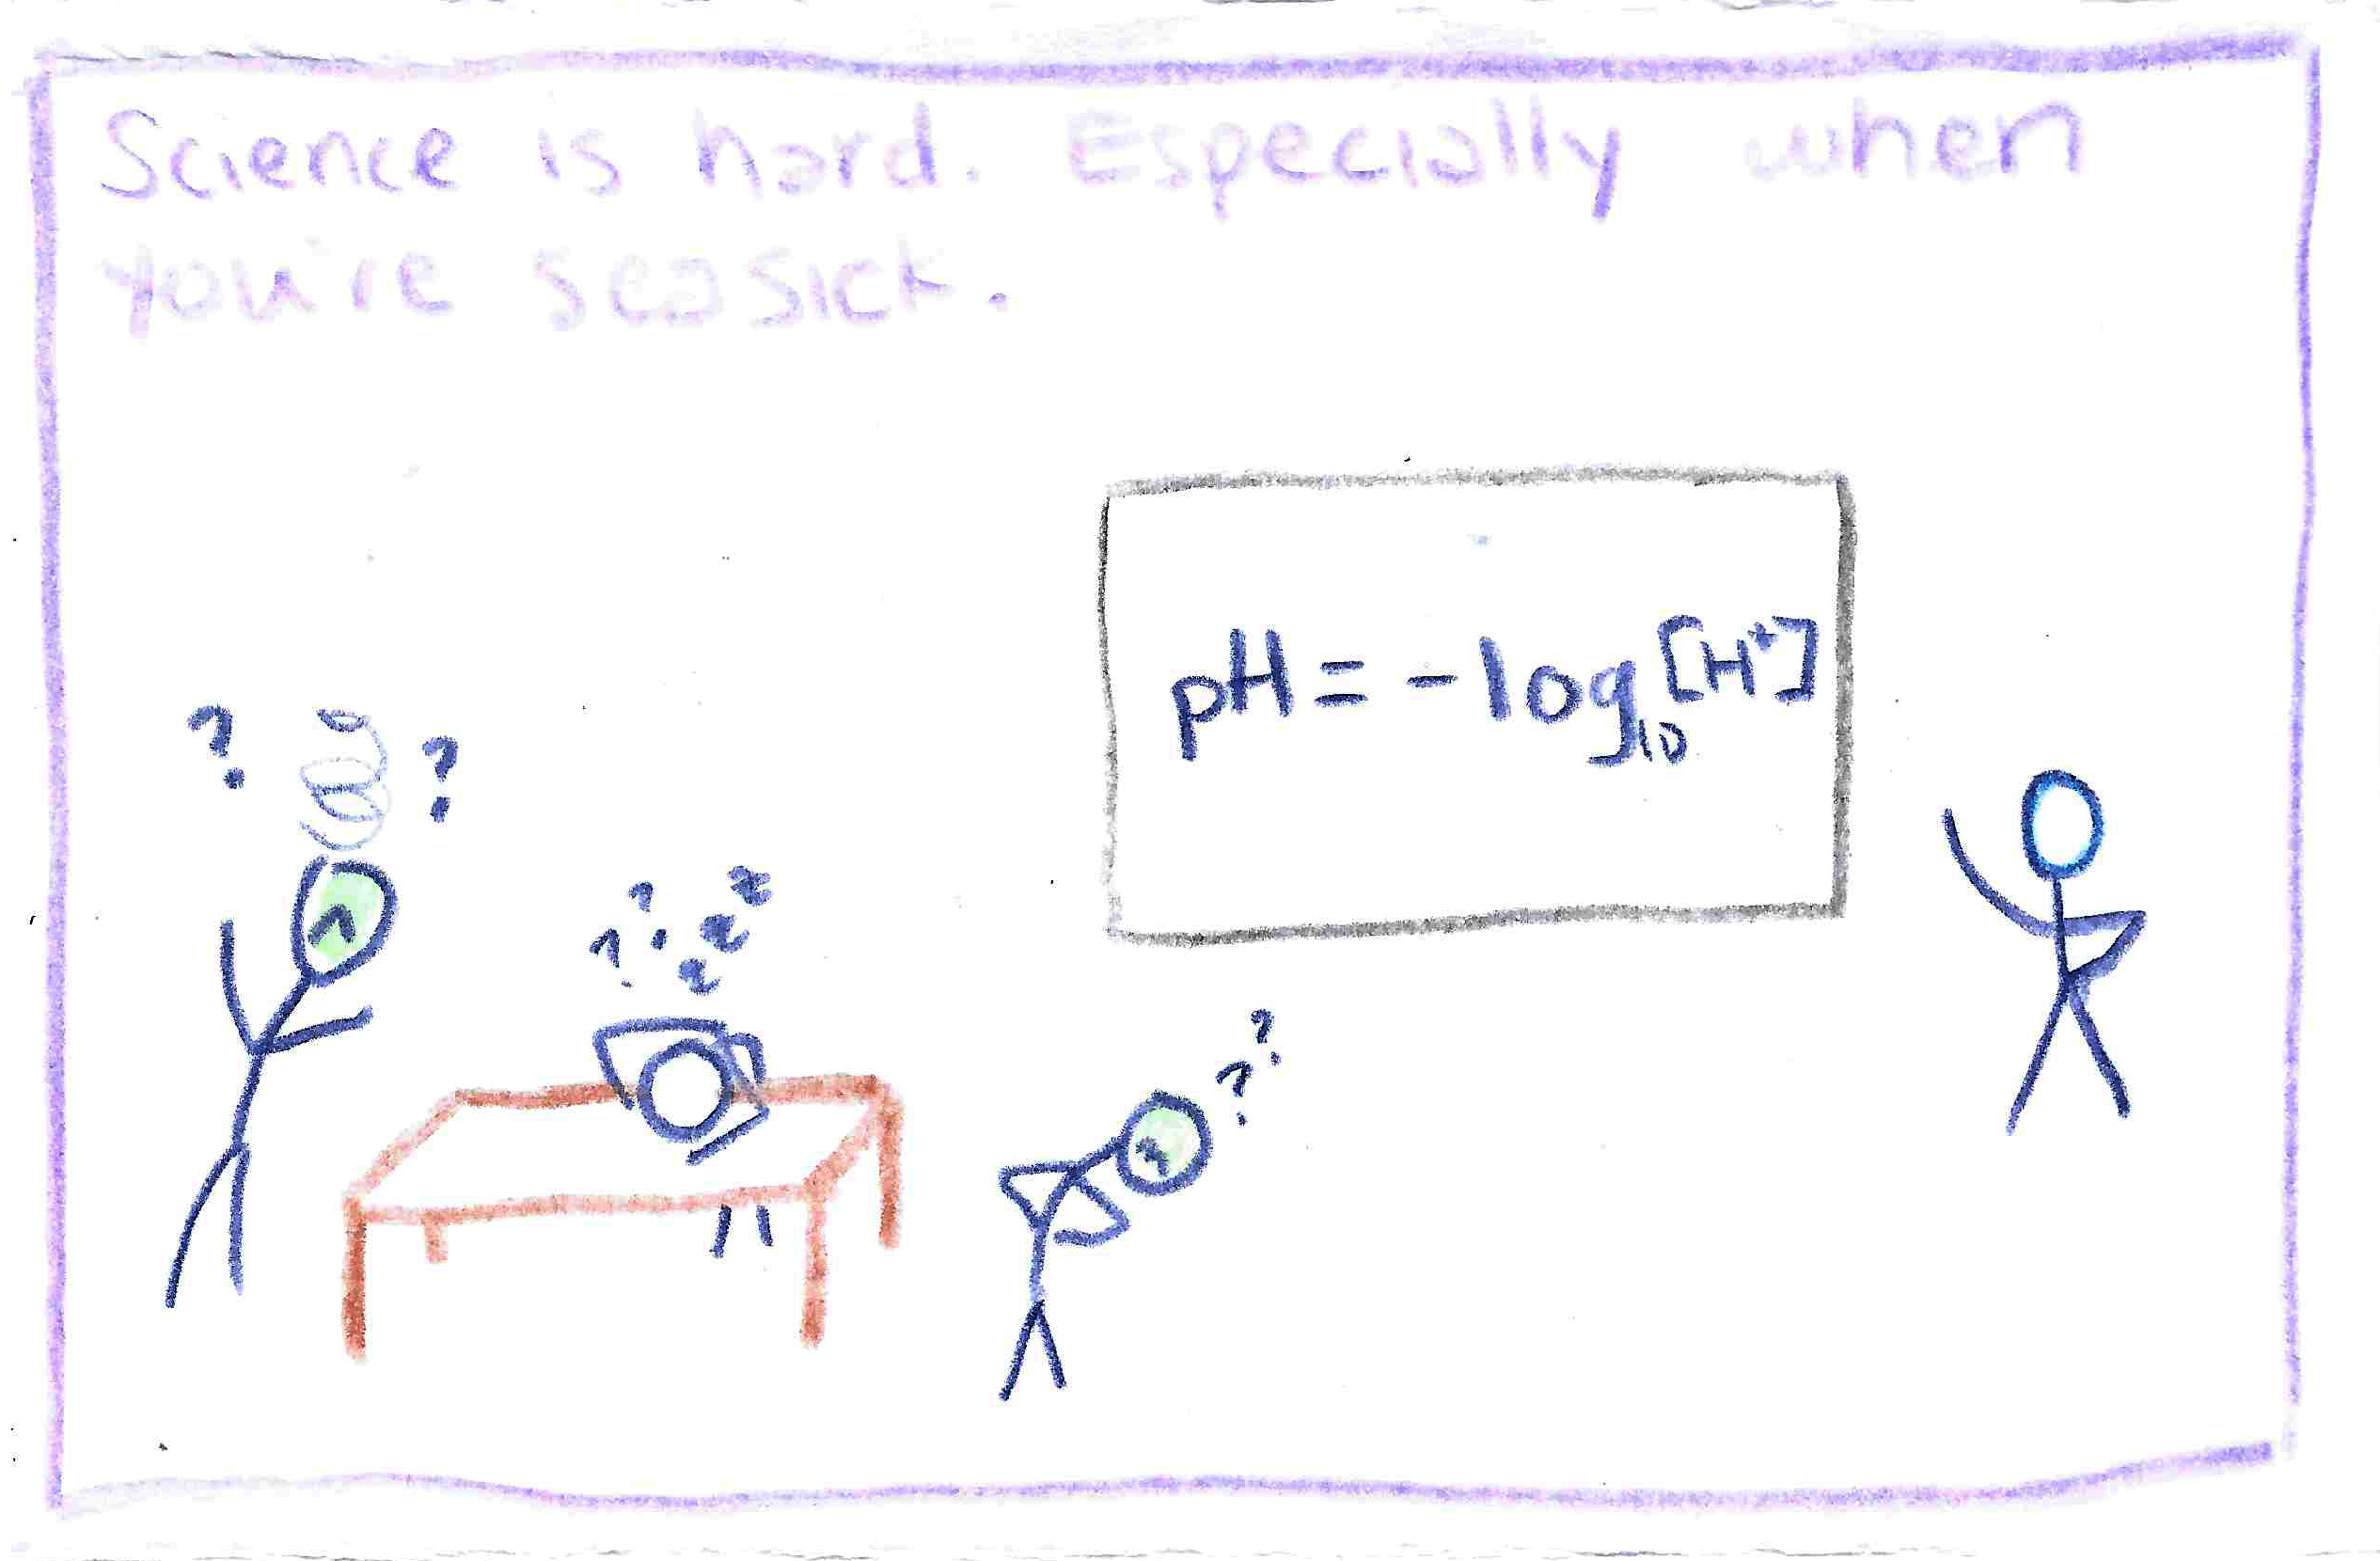 Science is hard. Especially when
you're seasick.
pH = -log₁₀[H⁺]
? ?
? ? z z z
? ?